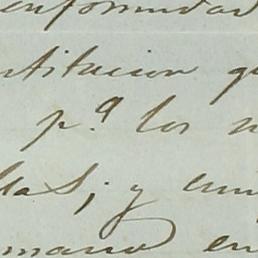 enformidad
ntitucion qu
p.ª los n
llas; y un
mano en